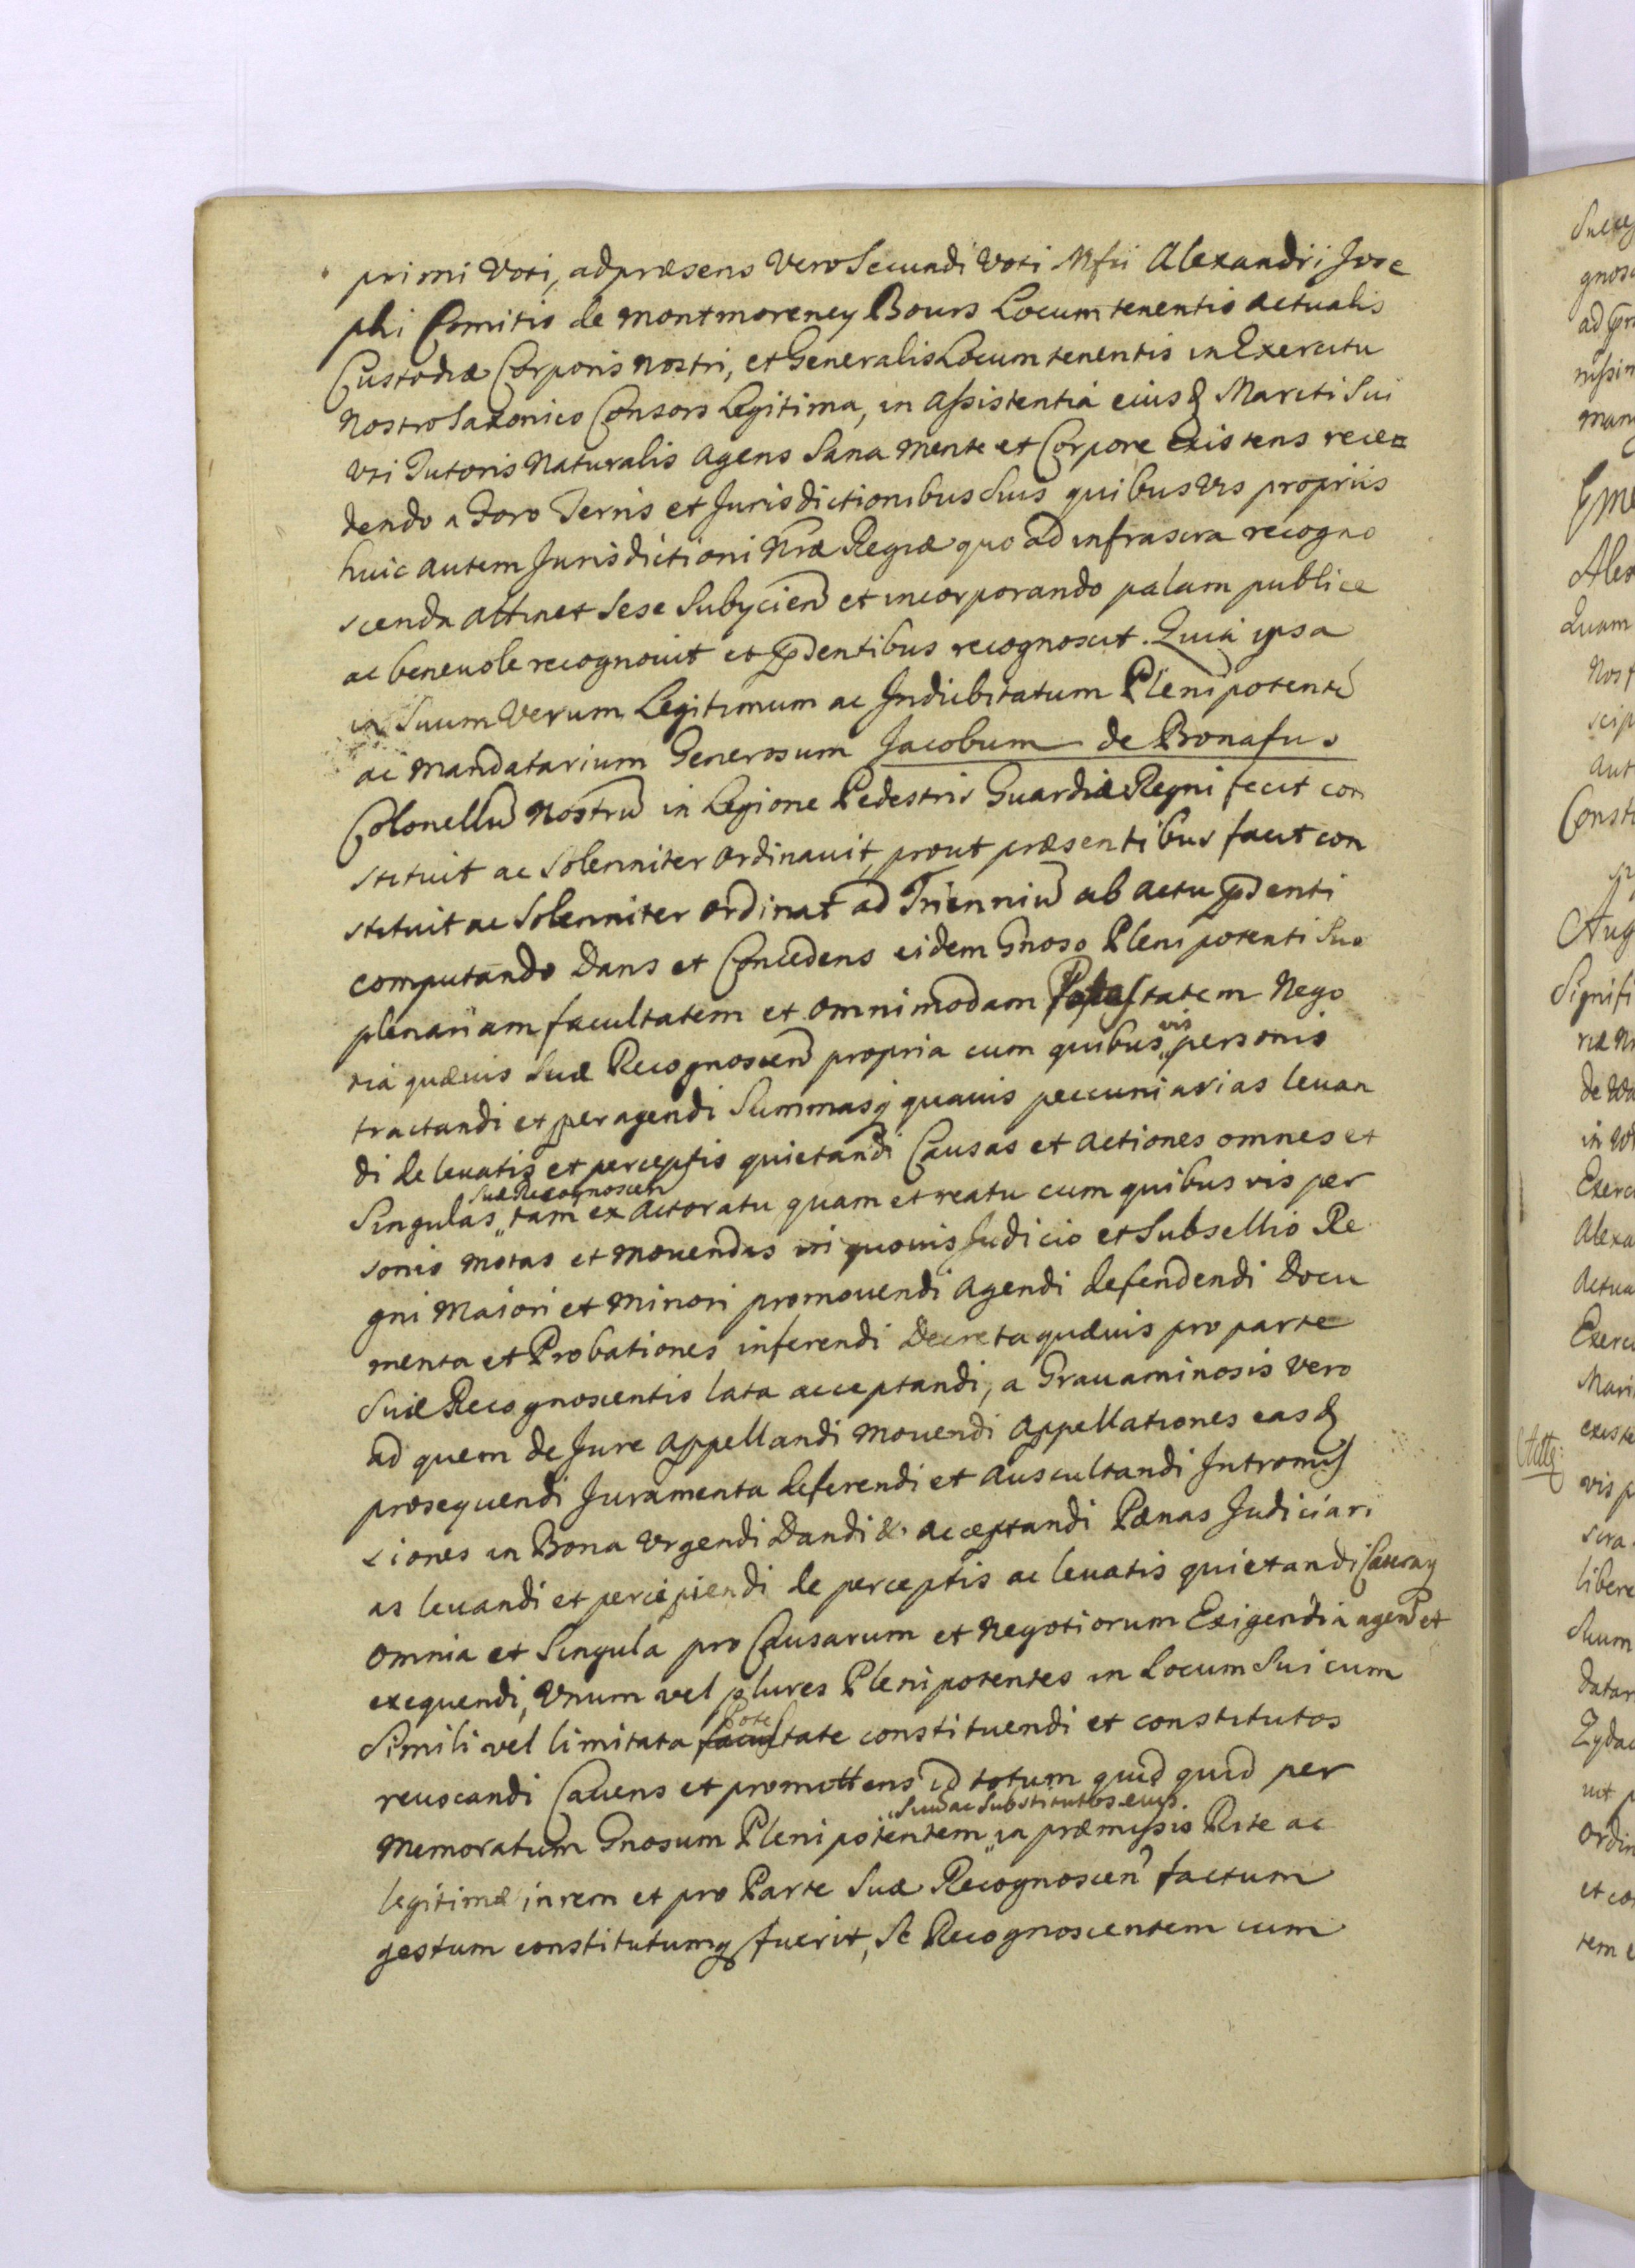 primi Voti, ad præsens Vero Secundi Voti Mfci Alexandri Jose
phi Comitis de Montmorency Bours Locum tenentis actualis
Custodiæ Corporis nostri, et Generalis Locum tenentis in Exercitu
Nostro Saxonico Consors Legitima, in assistentia eiusd Mariti Sui
Vti Tutoris Naturalis agens Sana mente et Corpore Existens rece=
dendo a Foro Terris et Jurisdictionibus Suis quibusvis propriis
huic autem Jurisdictioni Nræ Regiæ quo ad infrascra recogno
scenda attinet Sese Subyciend et incorporando palam publice
ac beneuole recognouit et prdentibus recognoscit. Quia ipsa
in Suum Verum Legitimum ac Indubitatum Plenipotente
ac Mandatarium Generosum Jacobum de Bonafus
Colonellu Nostru in Legione Pedestris Guardiæ Regni fecit con
stituit ac Solenniter Ordinauit, prout præsentibus facit con
stituit ac Solenniter ordinat ad Trienniu ab actu prdenti
computando Dans et Concedens eidem Gnoso Plenipotenti Suo
plenariam facultatem et omnimodam Potestatem Nego
tia quæuis Suæ Recognoscen propria cum quibus vis personis
tractandi et peragendi Summasq quauis peccuniarias leuan
di de leuatis et perceptis quietandi Causas et actiones omnes et
Singulas Suæ Recognoscen tam ex actoratu quam et reatu cum quibus vis per
sonis motas et mouendas in quouis Judicio et Subsellio Re
gni Maiori et Minori promouendi agendi defendendi Docu
menta et Probationes inferendi Decreta quæuis pro parte
Suæ Recognoscentis lata acceptandi, a Grauaminosis Vero
ad quem de Jure appellandi mouendi appellationes easd
prosequendi Juramenta deferendi et auscultandi Intromis
siones in Bona Vrgendi Dandi & acceptandi Pænas Judiciari
as leuandi et percipiendi de perceptis ac leuatis quietandi
Omnia et Singula pro Causarum et Negotiorum Exigendia agend et
exequendi, Vnum vel plures Plenipotentes in Locum Sui cum
Simili vel limitata Potestate constituendi et constitutos
reuocandi Cauens et promittens id totum quid quid per
Memoratum Gnosum Plenipotentem Suu ac Substitutos eius in præmissis Rite ac
legitime in rem et pro Parte Suæ Recognoscen factum
gestum constitutumq fuerit, Se Recognoscentem cum